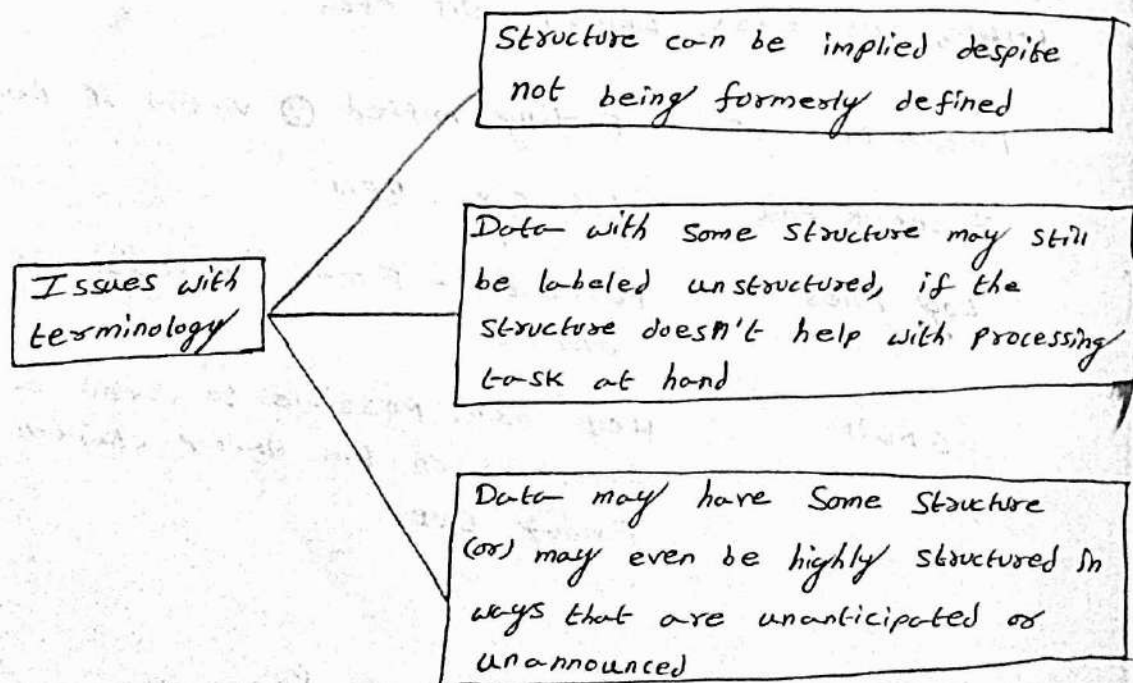 Structure can be implied despite
not being formerly defined
Issues with
terminology
Data with some structure may still
be labeled unstructured, if the
structure doesn't help with processing
task at hand
Data may have some structure
(or) may even be highly structured in
ways that are unanticipated or
unannounced